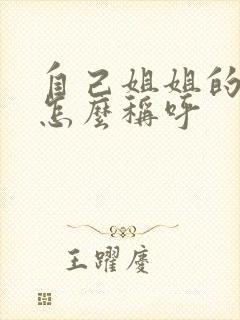 自己姐姐的
怎麼稱呼
王躍慶